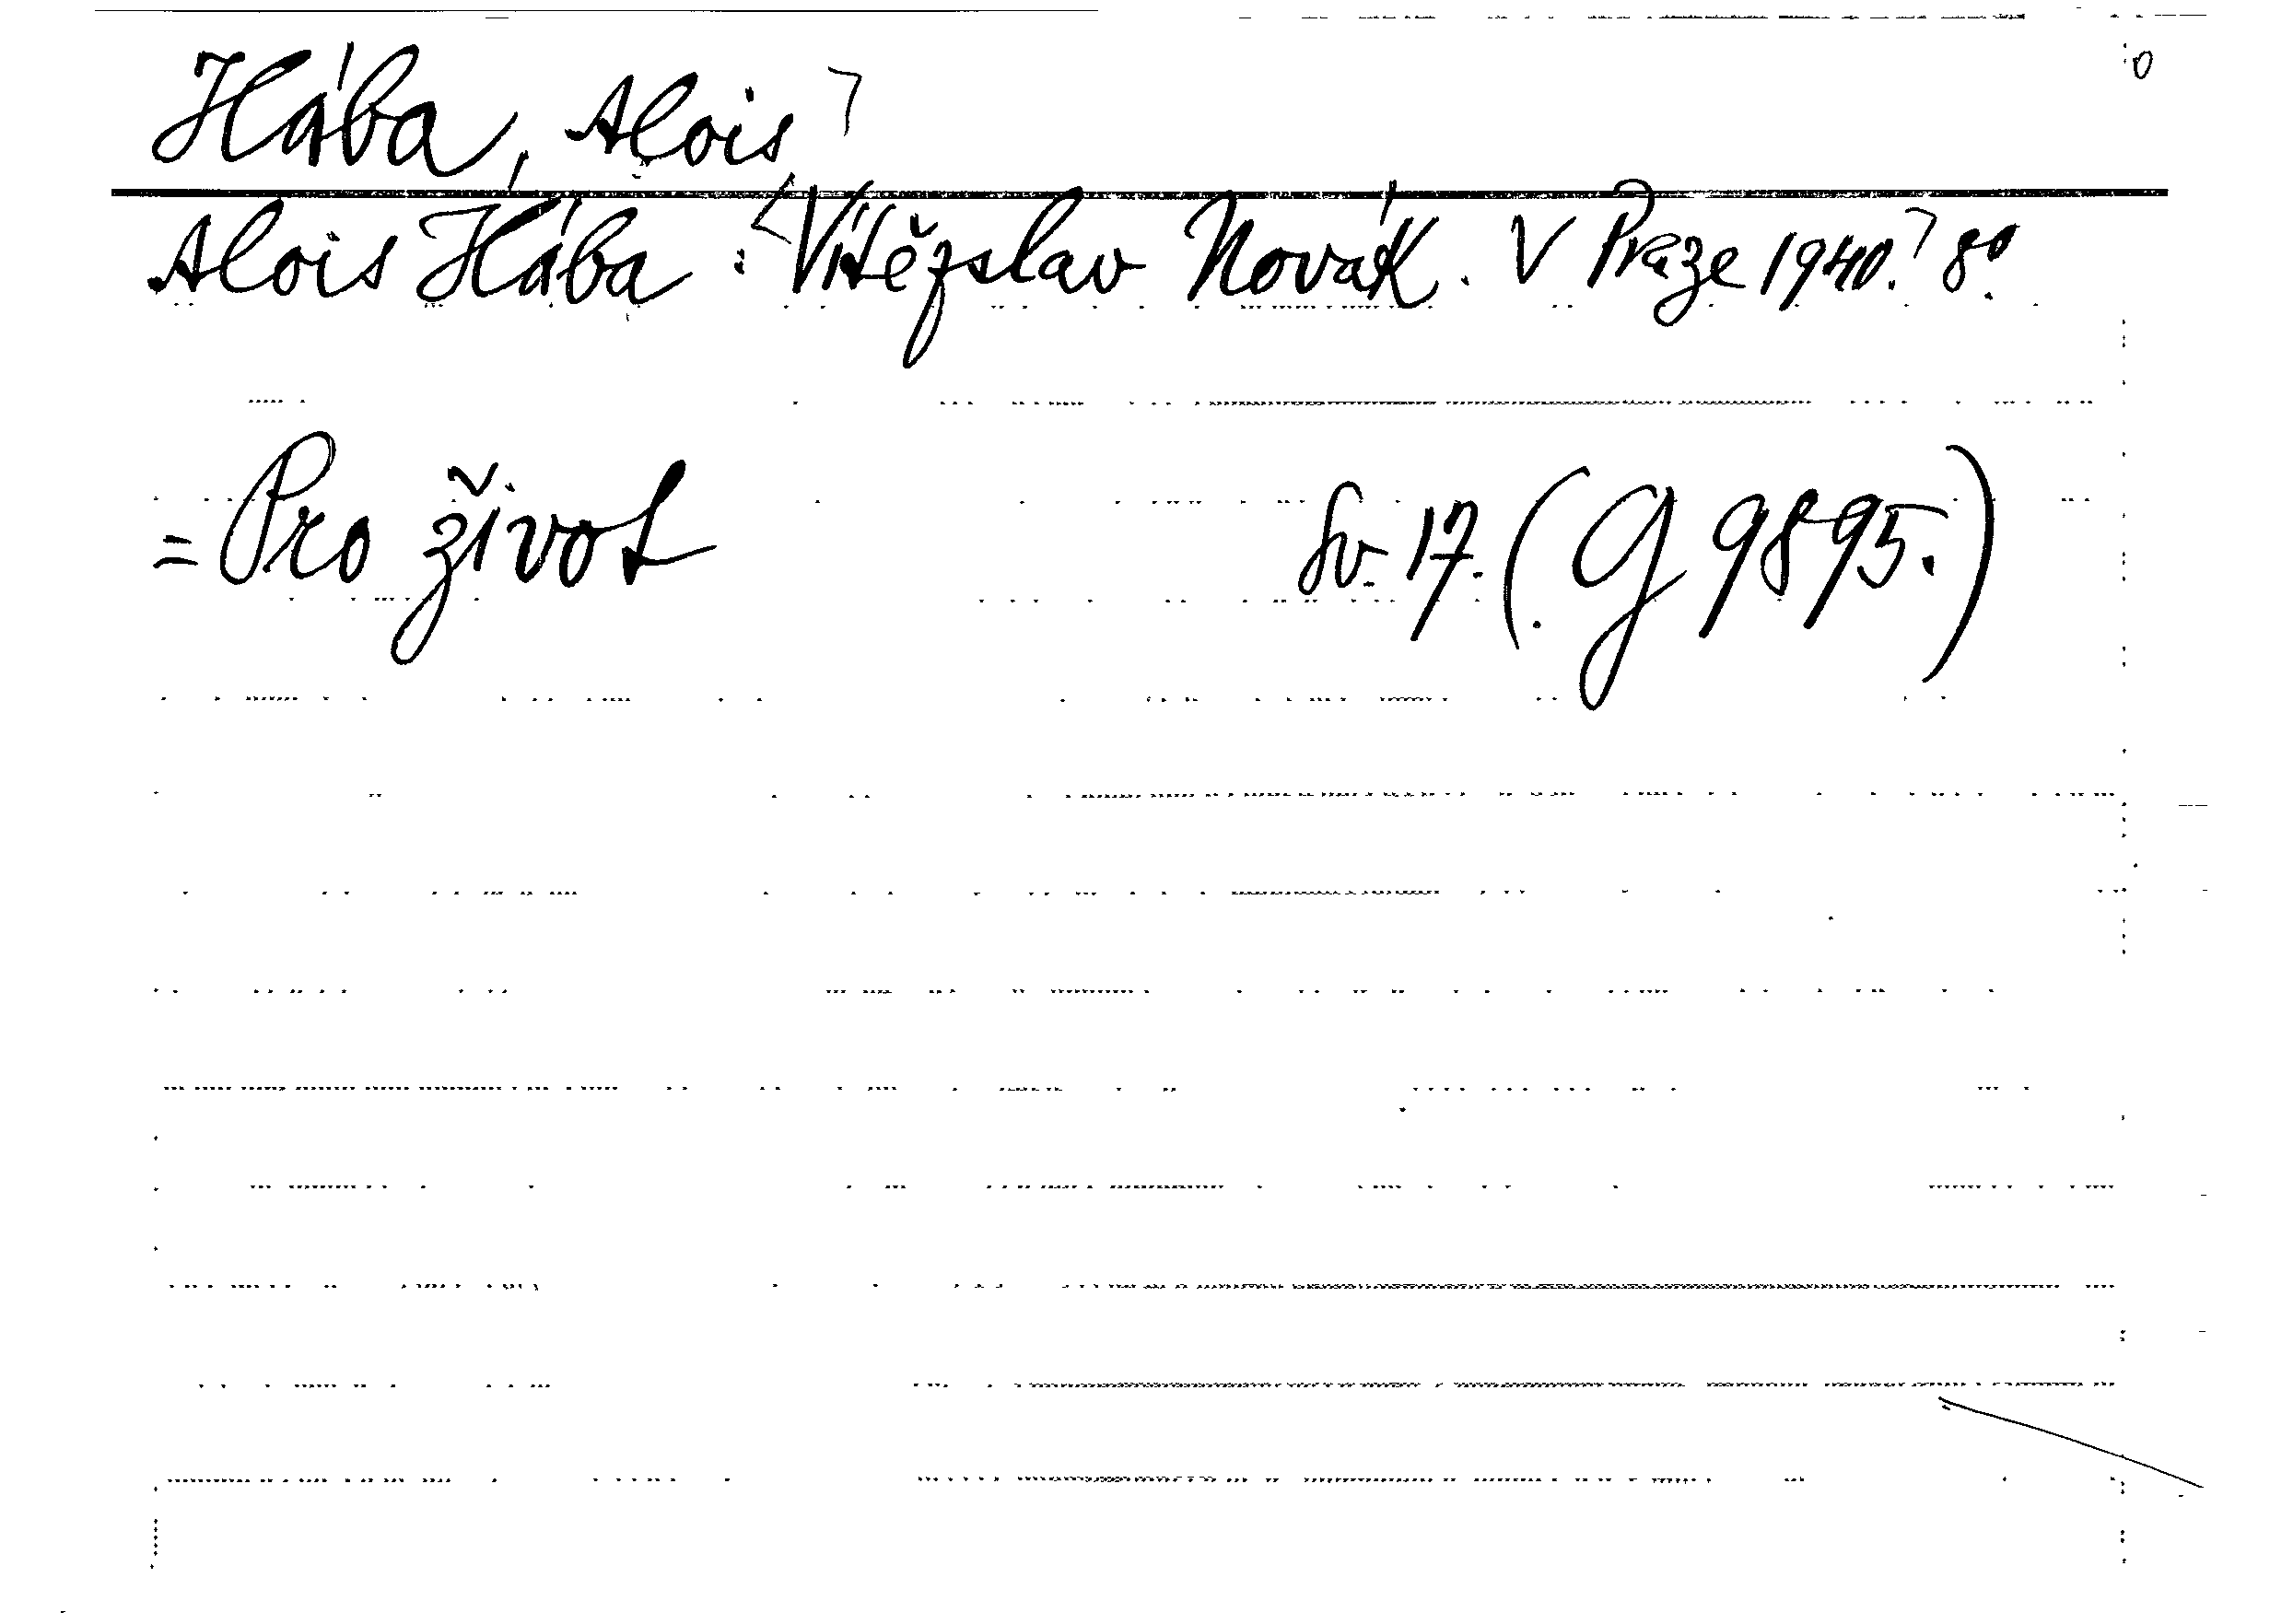 Hába, Alois
Alois Hába: Vítězslav Novák. V Praze 1940. 8°.
= Pro život Sv. 17. (G 9895.)